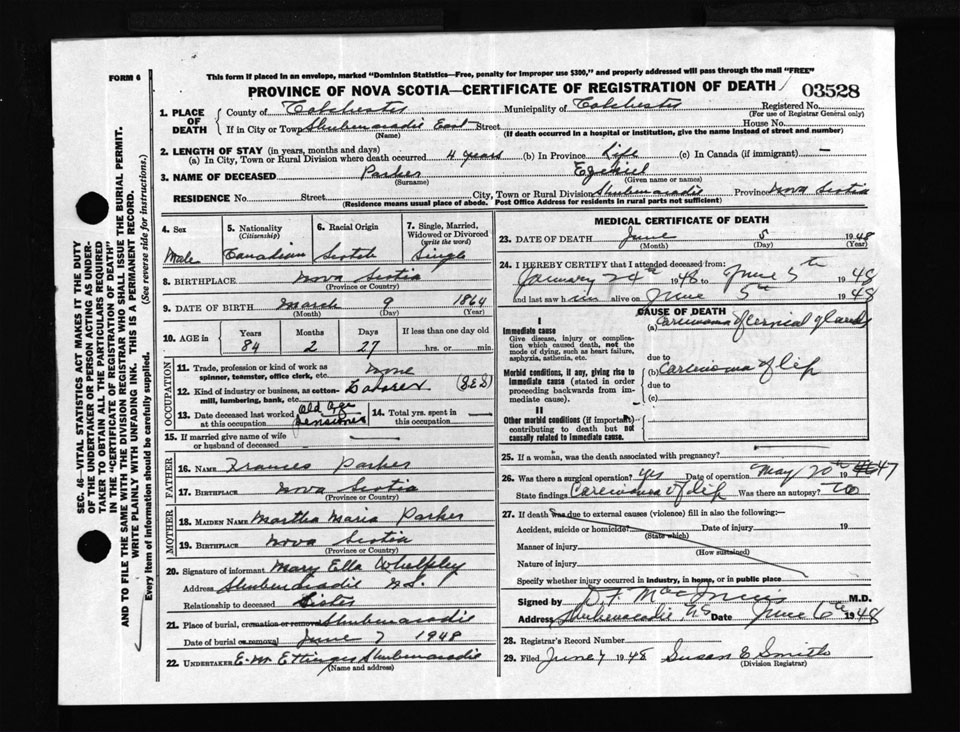 FORM 6
This form if placed in an envelope, marked "Dominion Statistics—Free, penalty for improper use $300," and properly addressed will pass through the mail "FREE"
PROVINCE OF NOVA SCOTIA—CERTIFICATE OF REGISTRATION OF DEATH 03528
SEC. 46—VITAL STATISTICS ACT MAKES IT THE DUTY OF THE UNDERTAKER OR PERSON ACTING AS UNDERTAKER TO OBTAIN ALL THE PARTICULARS REQUIRED IN THE "CERTIFICATE OF REGISTRATION OF DEATH" AND TO FILE THE SAME WITH THE DIVISION REGISTRAR WHO SHALL ISSUE THE BURIAL PERMIT.
WRITE PLAINLY WITH UNFADING INK. THIS IS A PERMANENT RECORD.
Every item of information should be carefully supplied. (See reverse side for instructions.)
1. PLACE OF DEATH County of Colchester Municipality of Colchester Registered No.
(For use of Registrar General only)
If in City or Town Shubenacadie East Street House No.
(Name) (If death occurred in a hospital or institution, give the name instead of street and number)
2. LENGTH OF STAY (in years, months and days)
(a) In City, Town or Rural Division where death occurred 4 years (b) In Province Life (c) In Canada (if immigrant) —
3. NAME OF DECEASED Parker Ezekiel
(Surname) (Given name or names)
RESIDENCE No. Street City, Town or Rural Division Shubenacadie Province Nova Scotia
(Residence means usual place of abode. Post Office Address for residents in rural parts not sufficient)
4. Sex 5. Nationality (Citizenship) 6. Racial Origin 7. Single, Married, Widowed or Divorced (write the word)
Male Canadian Scotch Single
8. BIRTHPLACE Nova Scotia
(Province or Country)
9. DATE OF BIRTH March 9 1864
(Month) (Day) (Year)
10. AGE in Years Months Days If less than one day old
84 2 27 hrs. or min.
OCCUPATION
11. Trade, profession or kind of work as spinner, teamster, office clerk, etc. none
12. Kind of industry or business, as cotton-mill, lumbering, bank, etc. Laborer
13. Date deceased last worked at this occupation Old Age Pensioner 14. Total yrs. spent in this occupation —
15. If married give name of wife or husband of deceased —
FATHER
16. NAME Frances Parker
17. BIRTHPLACE Nova Scotia
(Province or Country)
MOTHER
18. MAIDEN NAME Martha Maria Parker
19. BIRTHPLACE Nova Scotia
(Province or Country)
20. Signature of informant Mary Ella Whelpley
Address Shubenacadie N.S.
Relationship to deceased Sister
21. Place of burial, cremation or removal Shubenacadie
Date of burial or removal June 7 1948
22. UNDERTAKER E. W. Ettinger Shubenacadie
(Name and address)
MEDICAL CERTIFICATE OF DEATH
23. DATE OF DEATH June 5 1948
(Month) (Day) (Year)
24. I HEREBY CERTIFY that I attended deceased from:
January 24th 1948 to June 5th 1948
and last saw him alive on June 5th 1948
CAUSE OF DEATH
I
Immediate cause (a) Carcinoma of cervical glands
Give disease, injury or complication which caused death, not the mode of dying, such as heart failure, asphyxia, asthenia, etc.
due to
Morbid conditions, if any, giving rise to immediate cause (stated in order proceeding backwards from immediate cause).
(b) Carcinoma of lip
due to
(c)
II
Other morbid conditions (if important) contributing to death but not causally related to immediate cause.
25. If a woman, was the death associated with pregnancy?
26. Was there a surgical operation? Yes Date of operation May 20th 1947
State findings Carcinoma of lip Was there an autopsy? No
27. If death was due to external causes (violence) fill in also the following:—
Accident, suicide or homicide? Date of injury 19
(State which)
Manner of injury
(How sustained)
Nature of injury
Specify whether injury occurred in industry, in home, or in public place
Signed by D. F. MacInnis M.D.
Address Shubenacadie, N.S. Date June 6th 1948
28. Registrar's Record Number
29. Filed June 7 1948 Susan E Smith
(Division Registrar)